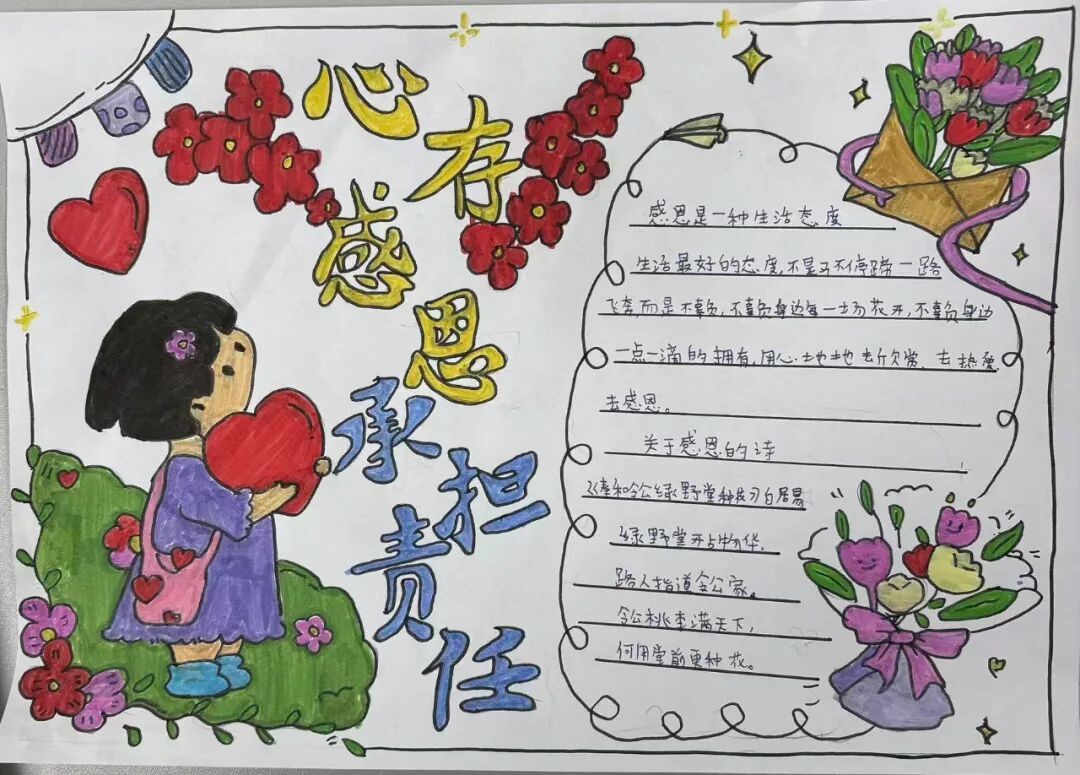 心存感恩
承担责任
感恩是一种生活态度
生活最好的态度,不是马不停蹄一路
飞奔,而是不辜负,不辜负身边每一场花开,不辜负身边
一点一滴的拥有,用心地地去欣赏、去热爱
去感恩。
关于感恩的诗
奉和令公绿野堂种花 白居易
绿野堂开占物华,
路人指道令公家。
令公桃李满天下,
何用堂前更种花。